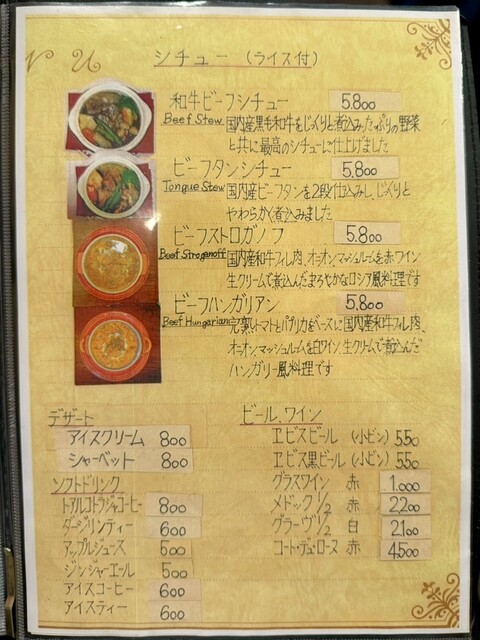 シチュー (ライス付)
和牛ビーフシチュー 5.800
Beef Stew 国内産黒毛和牛をじっくりと煮込み、たっぷりの野菜
と共に最高のシチューに仕上げました
ビーフタンシチュー 5.800
Tongue Stew 国内産ビーフタンを2段仕込みし、じっくりと
やわらかく煮込みました
ビーフストロガノフ 5.800
Beef Stroganoff 国内産和牛フィレ肉、オニオンマッシュルームを赤ワイン
生クリームで煮込んだまろやかなロシア風料理です
ビーフハンガリアン 5.800
Beef Hungarian 完熟トマトとパプリカをベースに国内産和牛フィレ肉、
オニオン、マッシュルームを白ワイン、生クリームで煮込んだ
ハンガリー風料理です
デザート
アイスクリーム 800
シャーベット 800
ソフトドリンク
トアルコトラジャコーヒー 800
ダージリンティー 600
アップルジュース 500
ジンジャーエール 500
アイスコーヒー 600
アイスティー 600
ビール、ワイン
ヱビスビール (小ビン) 550
ヱビス黒ビール (小ビン) 550
グラスワイン 赤 1.000
メドック 1/2 赤 2.200
グラーヴ 1/2 白 2.100
コート・デュ・ローヌ 赤 4.500